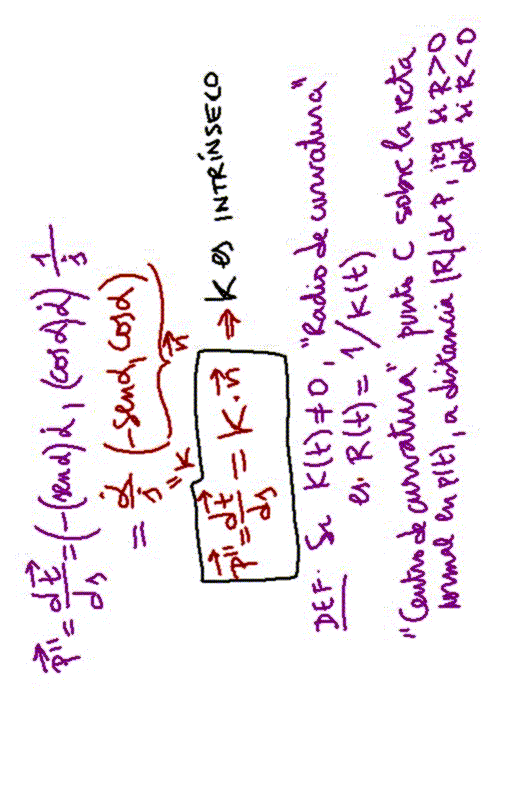 $\vec{p}'' = \frac{d\vec{t}}{ds} = (-(\operatorname{sen}\alpha)\dot{\alpha}, (\cos\alpha)\dot{\alpha}) \frac{1}{\dot{s}}$
$= \underbrace{\frac{\dot{\alpha}}{\dot{s}}}_{=K} \underbrace{(-\operatorname{sen}\alpha, \cos\alpha)}_{\vec{n}}$
$\vec{p}'' = \frac{d\vec{t}}{ds} = K \cdot \vec{n}$ ⇒ K es INTRÍNSECO
DEF. Si K(t) ≠ 0, "Radio de curvatura"
es R(t) = 1/K(t)
"Centro de curvatura" punto C sobre la recta
normal en p(t), a distancia |R| de P, izq si R>0
der si R<0